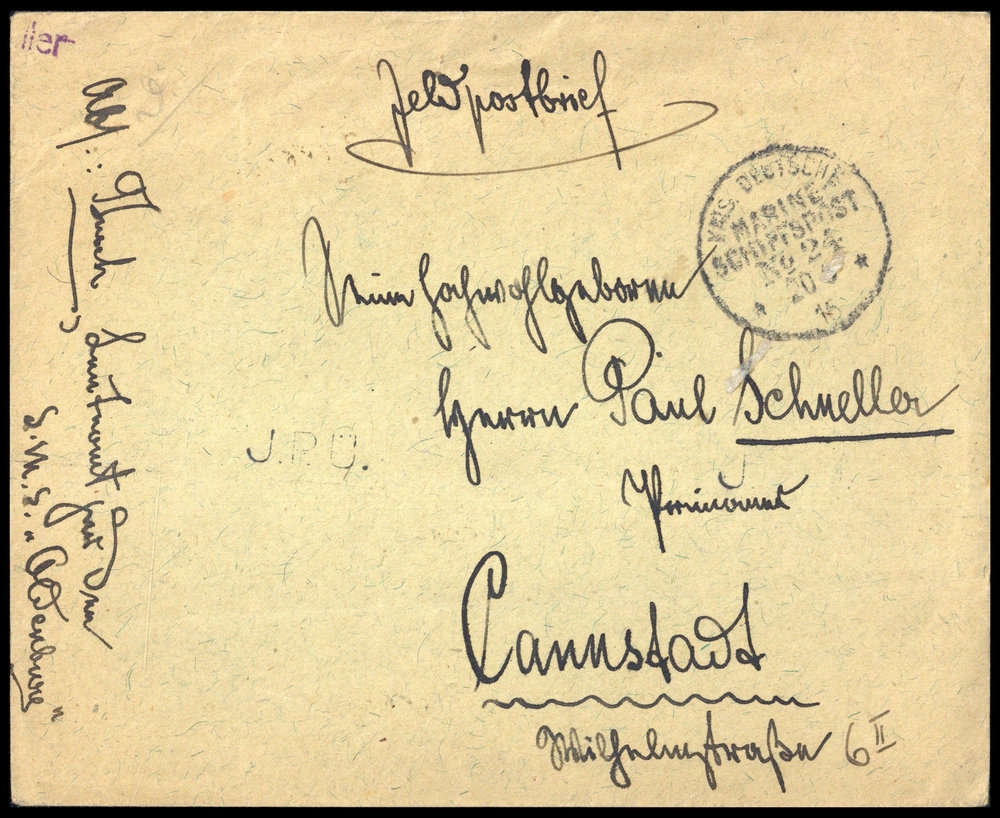 ller
Feldpostbrief
KAIS. DEUTSCHE
MARINE
SCHIFFSPOST
No 24
20 6
15
* *
Seiner Hochwohlgeboren
Herrn Paul Schneller
Cannstadt
Wilhelmstraße 6 II
J.P.Ü.
Abs.:
Leutnant
S.M.S. "